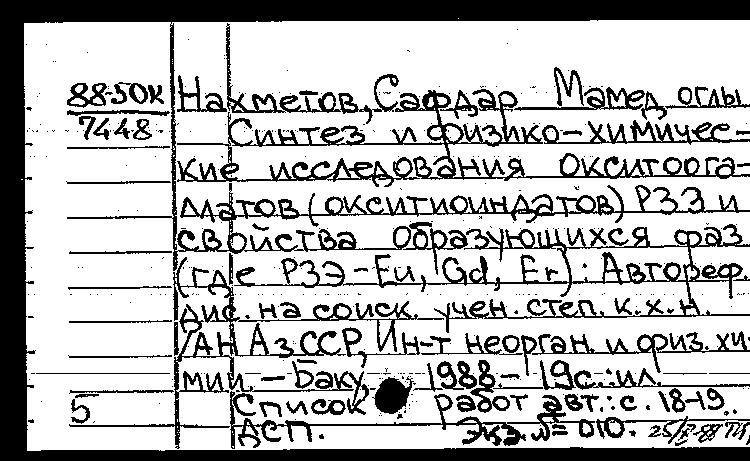 88-50к Нахметов, Сафдар Мамед оглы
7448 Синтез и физико-химичес-
кие исследования окситиога-
ллатов (окситиоиндатов) РЗЭ и
свойства образующихся фаз
(где РЗЭ-Eu, Gd, Er): Автореф.
дис. на соиск. учен. степ. к.х.н.
/АН АзССР, Ин-т неорган. и физ. хи-
мии. - Баку, 1988. - 19с.: ил.
5 Список работ авт.: с. 18-19.
ДСП. Экз. № 010.